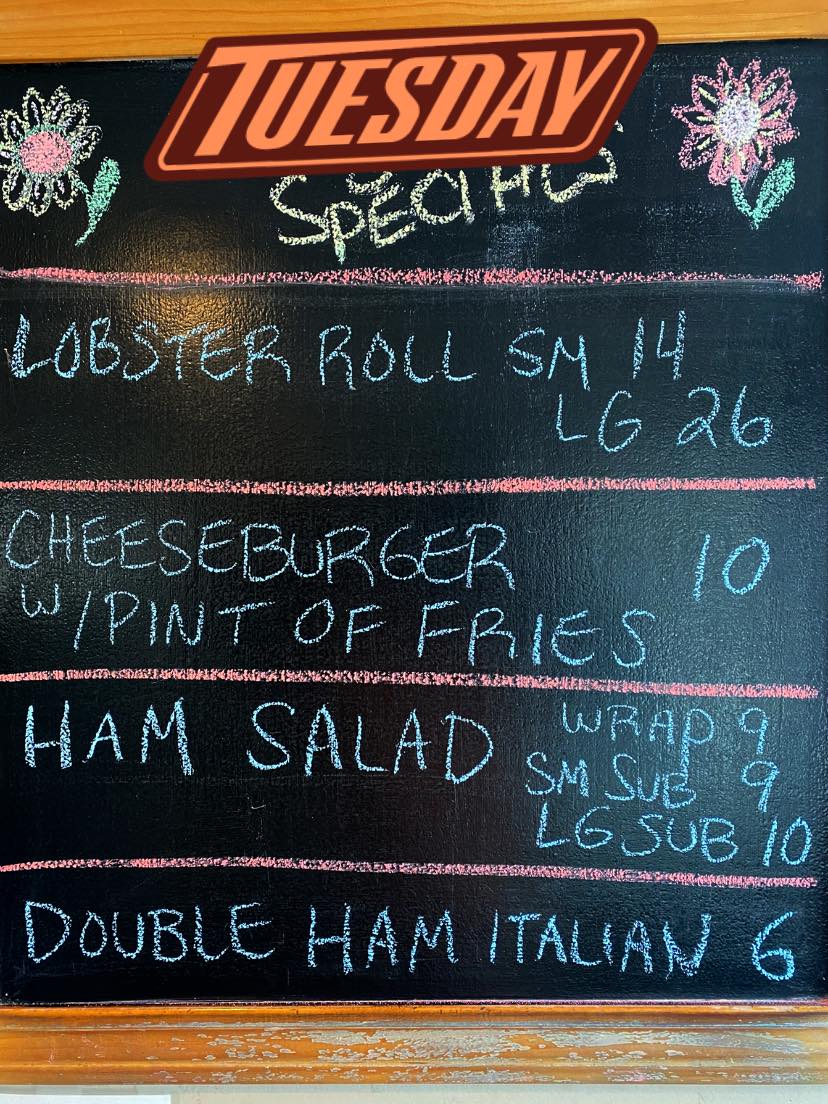 TUESDAY
SPECIALS
LOBSTER ROLL SM 14
LG 26
CHEESEBURGER 10
W/PINT OF FRIES
HAM SALAD WRAP 9
SM SUB 9
LG SUB 10
DOUBLE HAM ITALIAN 6